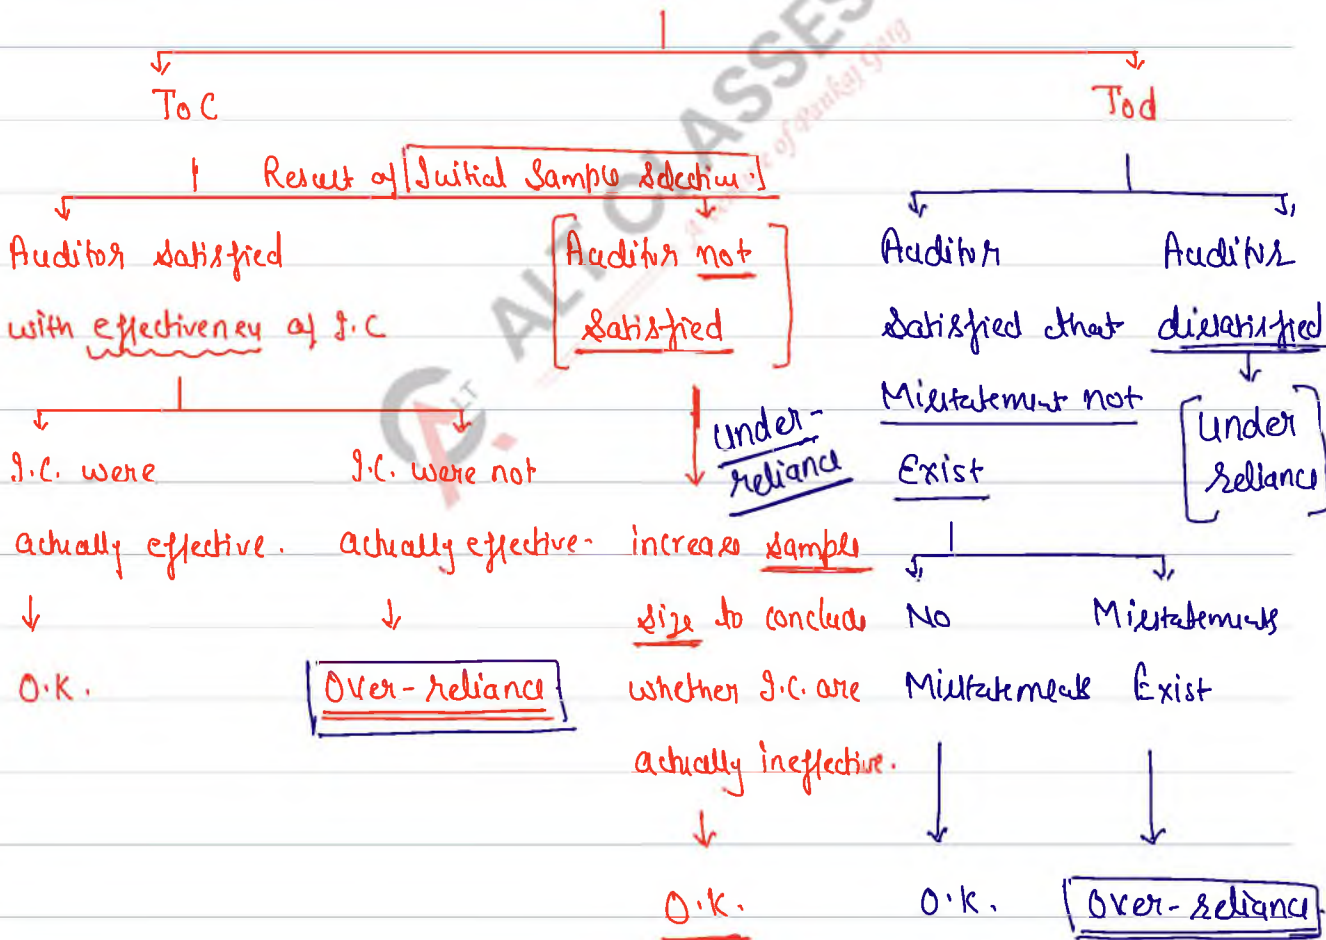 ToC
Tod
Result of [Initial Sample Selection.]
Auditor satisfied
with effectiveney of I.C
Auditor not
Satisfied
Auditor
satisfied that
Misstatement not
Exist
Auditor
dissatisfied
under
reliance
under-
reliance
I.C. were
actually effective.
O.K.
I.C. were not
actually effective.
Over-reliance
increase sample
size to conclude
whether I.C. are
actually ineffective.
O.K.
No
Misstatements
O.K.
Misstatements
Exist
Over-reliance
ALT CLASSES
A venture of Pankaj Garg
ALT